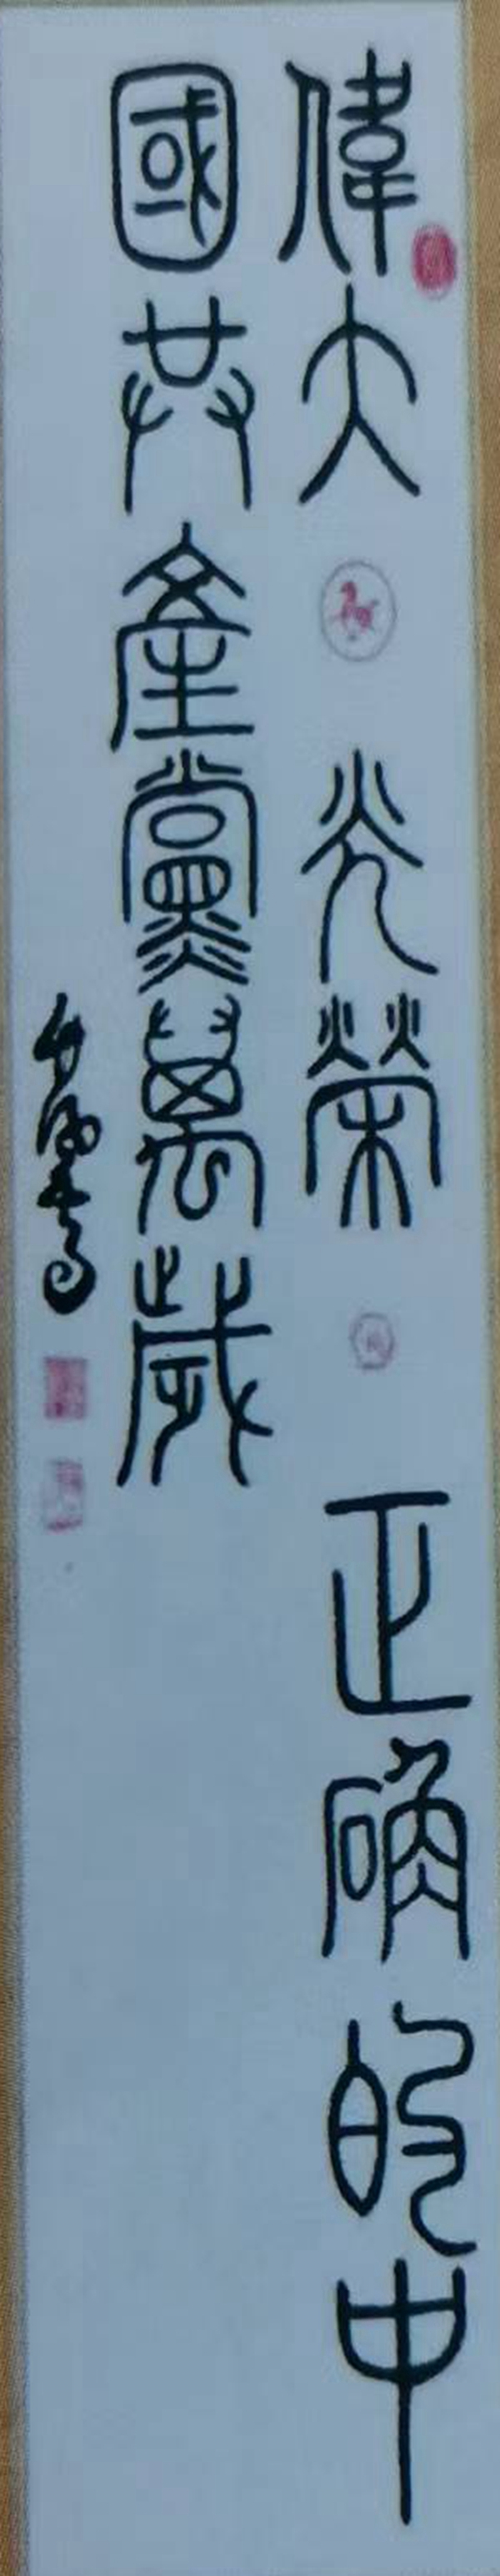 偉大 光榮 正确的中
國共産黨萬歲